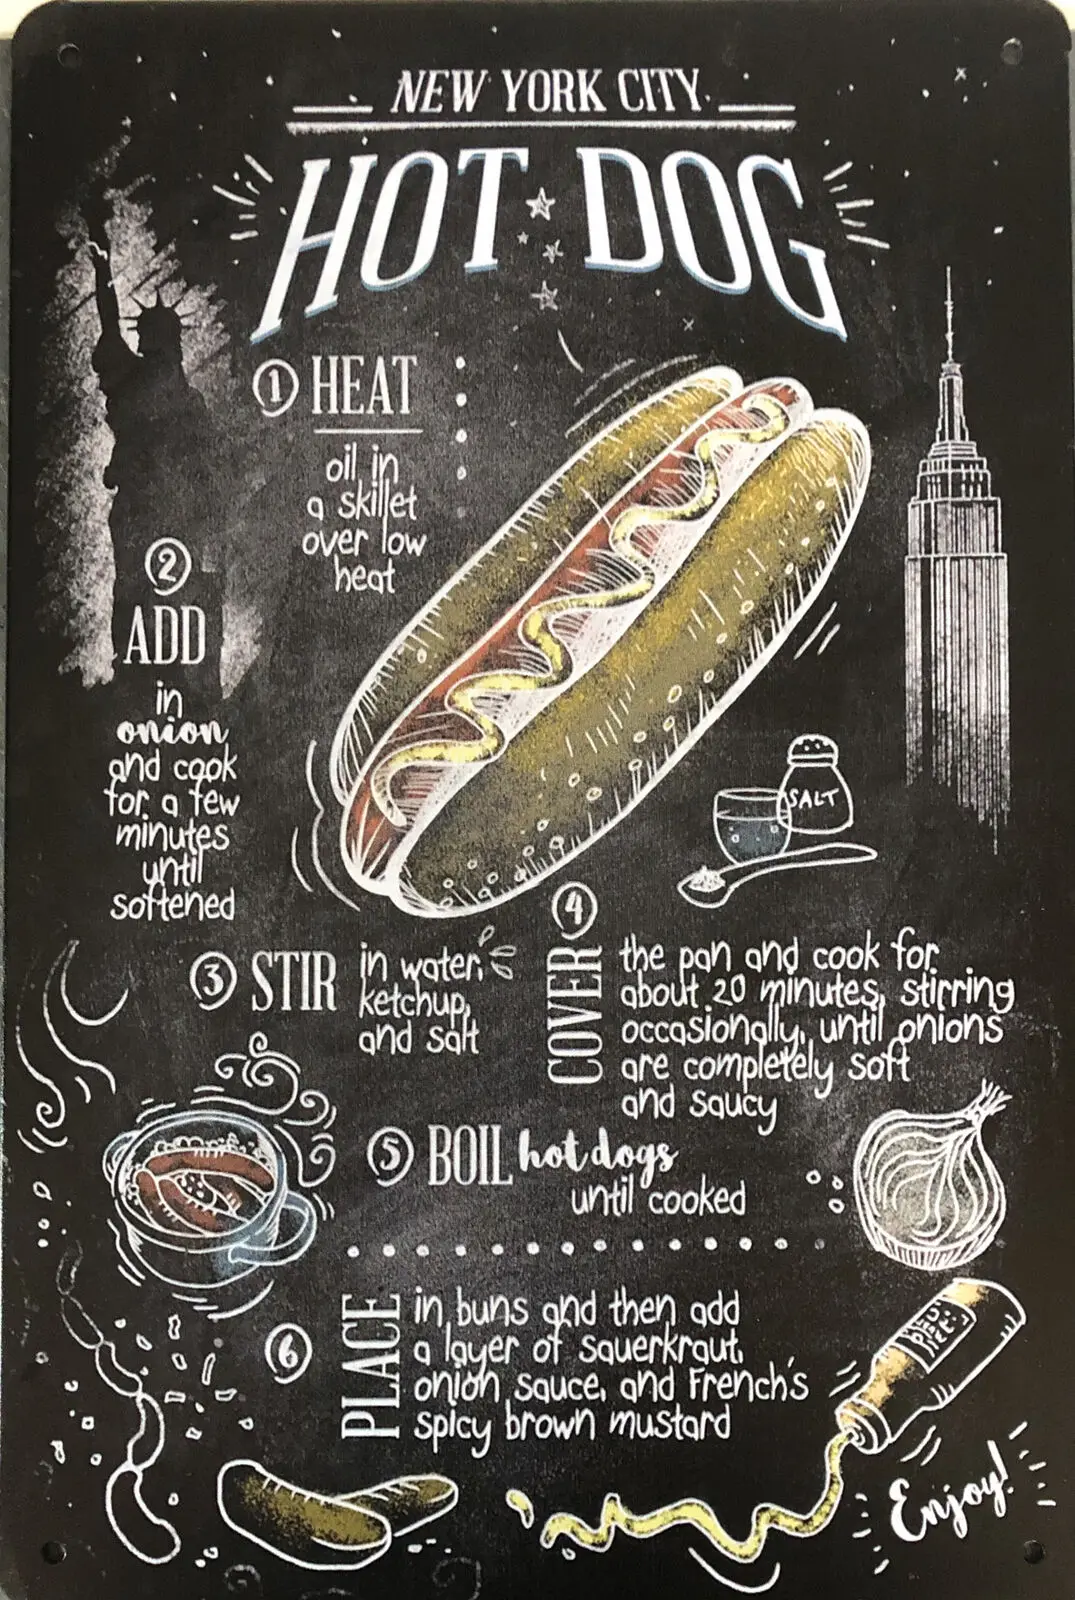 NEW YORK CITY
HOT DOG
1 HEAT
oil in
a skillet
over low
heat
2
ADD
in
onion
and cook
for a few
minutes
until
softened
SALT
3 STIR
in water,
ketchup,
and salt
4
COVER
the pan and cook for
about 20 minutes, stirring
occasionally, until onions
are completely soft
and saucy
5 BOIL hot dogs
until cooked
6
PLACE
in buns and then add
a layer of sauerkraut,
onion sauce, and French's
spicy brown mustard
Enjoy!